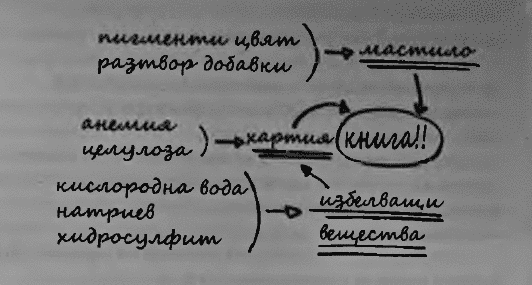 пигменти цвят
разтвор добавки
мастило
анемия
целулоза
хартия
книга!!
кислородна вода
натриев
хидросулфит
избелващи
вещества